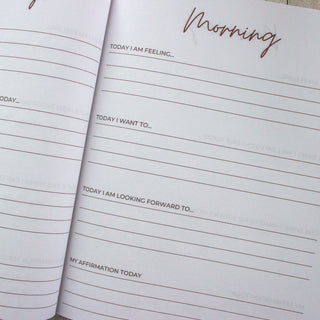 Morning
TODAY I AM FEELING...
TODAY I WANT TO...
TODAY I AM LOOKING FORWARD TO...
MY AFFIRMATION TODAY